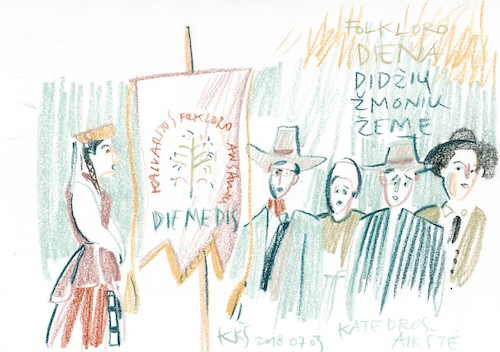 FOLKLORO
DIENA
DIDŽIŲ
ŽMONIŲ
ŽEMĖ
KALVARIJOS FOLKLORO
DIEMEDIS
KKŠ 2018 07 05
KATEDROS
AIKŠTĖ